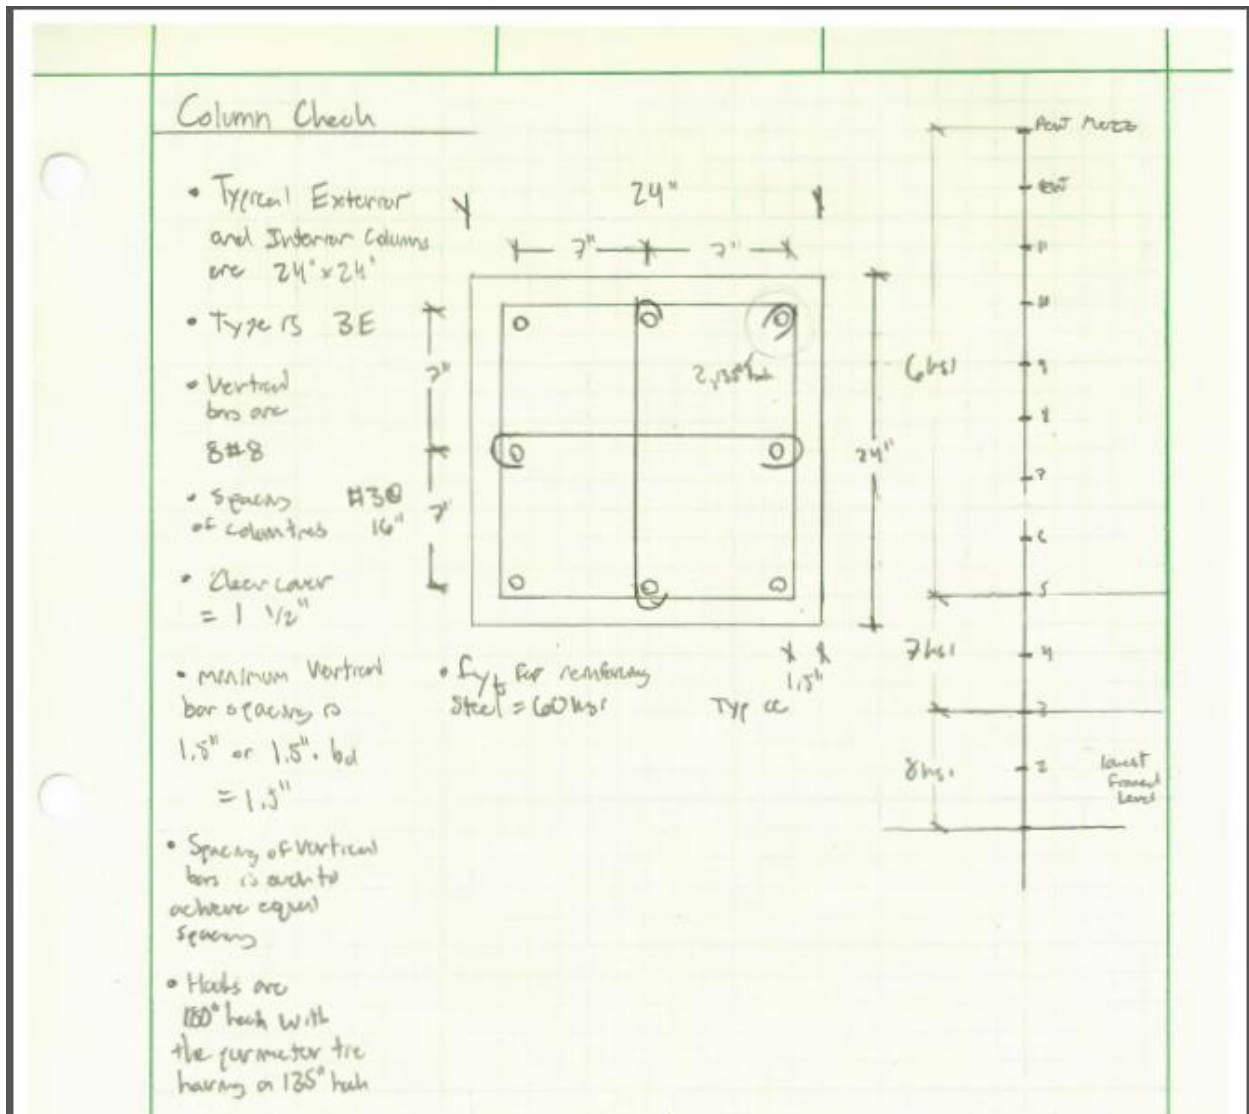 Column Check
• Typical Exterior
and Interior Columns
are 24" x 24"
• Type is 3E
• Vertical
bars are
8#8
• Spacing #3@
of column ties 16"
• Clear cover
= 1 1/2"
• minimum vertical
bar spacing is
1.5" or 1.5" · bd
= 1.5"
• Spacing of vertical
bars is such to
achieve equal
spacing
• Hooks are
180° hook with
the perimeter tie
having a 135° hook
24"
7" 7"
7"
7"
2, 135° hook
24"
1.5"
Typ cc
• fyt for reinforcing
steel = 60 ksi
6 ksi
7 ksi
8 ksi
11
10
9
8
7
6
5
4
3
2
lowest
framed
level